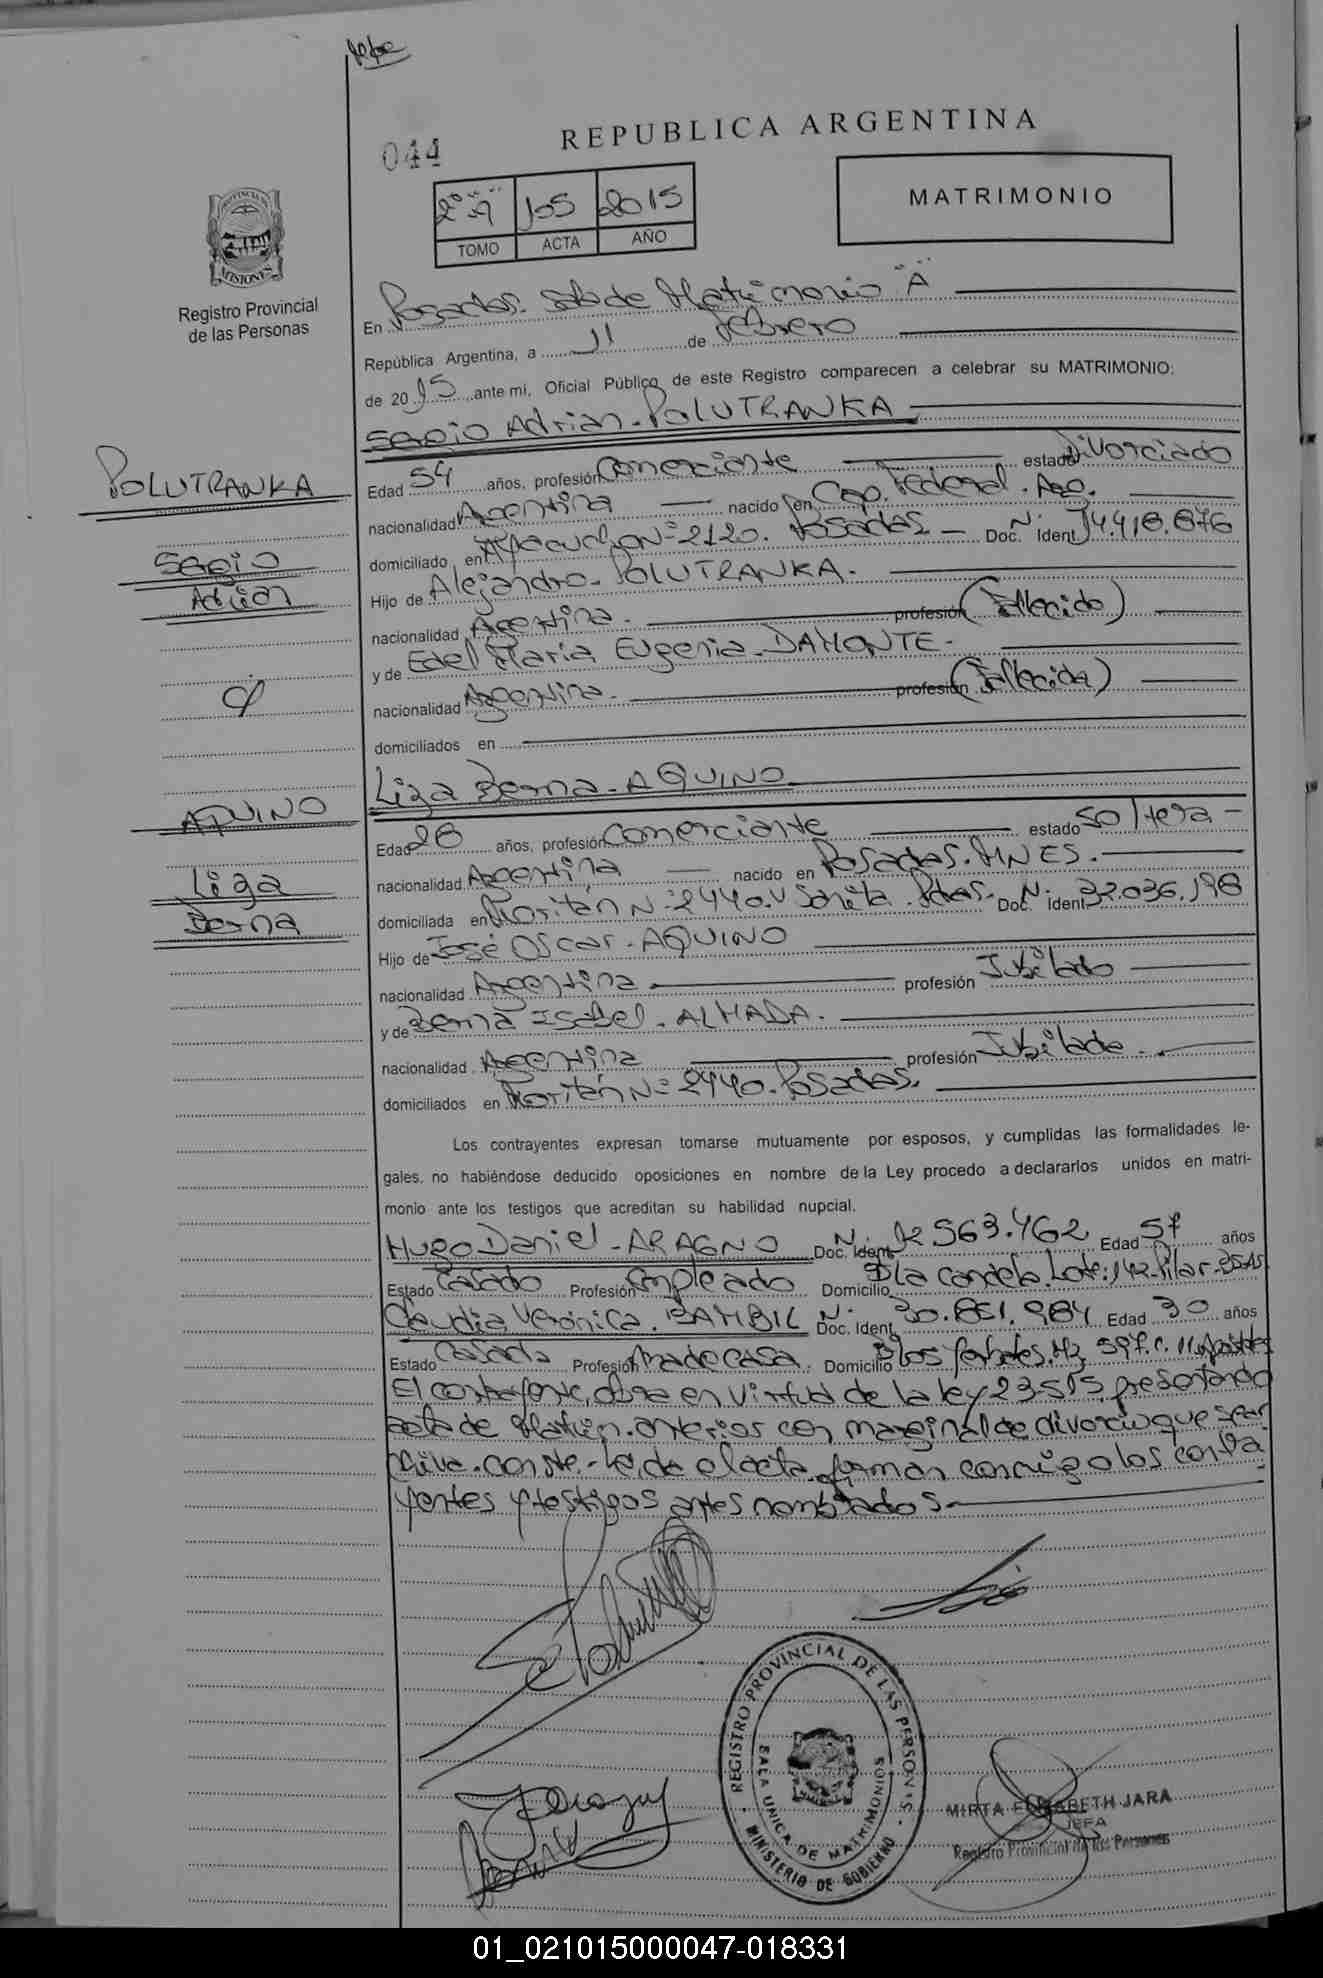 044
REPUBLICA ARGENTINA
MATRIMONIO
105 2015
TOMO ACTA AÑO
Registro Provincial
de las Personas
En Posadas. Sala de Matrimonio "A"
República Argentina, a 11 de febrero
de 2015 ante mi, Oficial Público de este Registro comparecen a celebrar su MATRIMONIO:
Sergio Adrian. POLUTRANKA
POLUTRANKA
Sergio
Adrian
Edad 54 años, profesión Comerciante estado Divorciado
nacionalidad Argentina nacido en Cap. Federal. Arg.
domiciliado en Ayacucho Nº 2120. Posadas Doc. Ident. 14.418.876
Hijo de Alejandro. POLUTRANKA.
nacionalidad Argentina. profesión (Fallecido)
y de Edel Maria Eugenia. DAMONTE.
nacionalidad Argentina. profesión (Fallecida)
domiciliados en
Liza Berna. AQUINO
AQUINO
Liza
Berna
Edad 28 años, profesión Comerciante estado Soltera
nacionalidad Argentina nacido en Posadas. MNES.
domiciliada en Nº 2440. Pdas. Doc. Ident. 32.036.198
Hijo de José Oscar. AQUINO
nacionalidad Argentina profesión Jubilado
y de Berna Isabel. ALMADA.
nacionalidad Argentina profesión Jubilada.
domiciliados en Nº 2440. Posadas.
Los contrayentes expresan tomarse mutuamente por esposos, y cumplidas las formalidades le-
gales, no habiéndose deducido oposiciones en nombre de la Ley procedo a declararlos unidos en matri-
monio ante los testigos que acreditan su habilidad nupcial.
Hugo Daniel. ARAGNO Doc. Ident. 12.563.462 Edad 57 años
Estado Casado Profesión Empleado Domicilio Bº La Candela. Lote: 142. Pilar. Bs As
Claudia Verónica. BAMBIL Doc. Ident. 30.851.984 Edad 30 años
Estado Casada Profesión Ama de casa. Domicilio Bº Los
El contrayente, obra en virtud de la ley 23.515 presentando
acta de Matrim. anterior con marginal de divorcio que se ar
chiva. conste. Leída el acta firman conmigo los contra
yentes y testigos antes nombrados.
REGISTRO PROVINCIAL DE LAS PERSONAS
SALA UNICA DE MATRIMONIOS
MINISTERIO DE GOBIERNO
MIRTA ELISABETH JARA
JEFA
Registro Provincial de las Personas
01_021015000047-018331